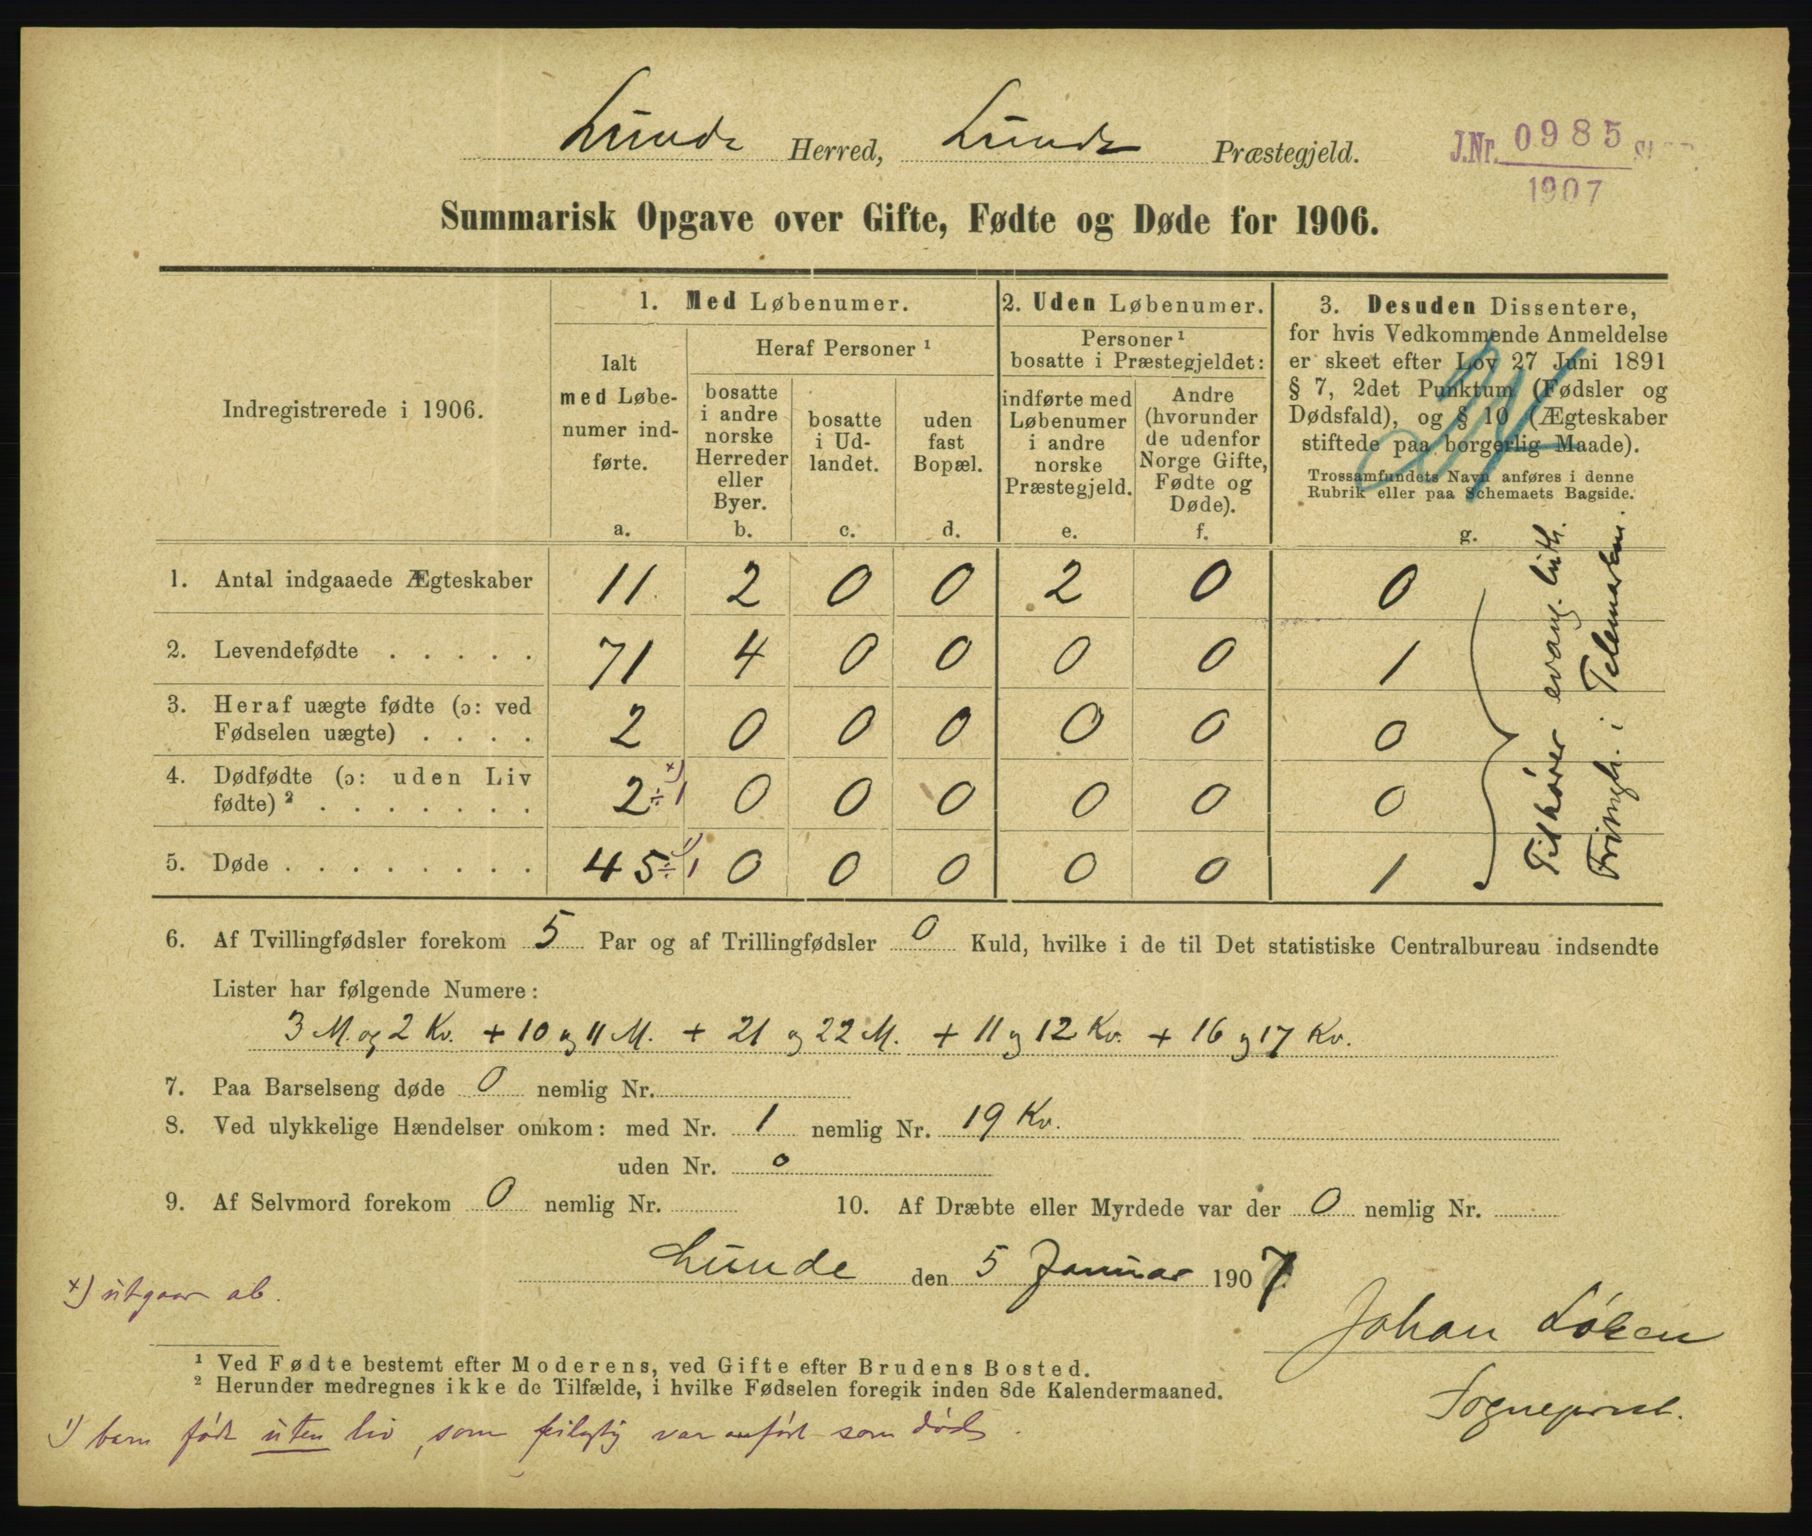 Lunde Herred, Lunde Præstegjeld.
J.Nr. 0985
1907
Summarisk Opgave over Gifte, Fødte og Døde for 1906.
Indregistrerede i 1906.
1. Med Løbenumer.
Ialt
med Løbe-
numer ind-
førte.
a.
Heraf Personer ¹
bosatte
i andre
norske
Herreder
eller
Byer.
b.
bosatte
i Ud-
landet.
c.
uden
fast
Bopæl.
d.
2. Uden Løbenumer.
Personer ¹
bosatte i Præstegjeldet:
indførte med
Løbenumer
i andre
norske
Præstegjeld.
e.
Andre
(hvorunder
de udenfor
Norge Gifte,
Fødte og
Døde).
f.
3. Desuden Dissentere,
for hvis Vedkommende Anmeldelse
er skeet efter Lov 27 Juni 1891
§ 7, 2det Punktum (Fødsler og
Dødsfald), og § 10 (Ægteskaber
stiftede paa borgerlig Maade).
Trossamfundets Navn anføres i denne
Rubrik eller paa Schemaets Bagside.
g.
1. Antal indgaaede Ægteskaber 11 2 0 0 2 0 0
2. Levendefødte . . . . . 71 4 0 0 0 0 1
3. Heraf uægte fødte (ɔ: ved
Fødselen uægte) . . . . 2 0 0 0 0 0 0
4. Dødfødte (ɔ: uden Liv
fødte) ² . . . . . . . 2 ÷ 1 x) 0 0 0 0 0 0
5. Døde . . . . . . . . 45 ÷ 1 1) 0 0 0 0 0 1
Tilhører evang. luth.
Frimgh. i Telemarken.
6. Af Tvillingfødsler forekom 5 Par og af Trillingfødsler 0 Kuld, hvilke i de til Det statistiske Centralbureau indsendte
Lister har følgende Numere:
3 M. og 2 Kv. + 10 og 11 M. + 21 og 22 M. + 11 og 12 Kv. + 16 og 17 Kv.
7. Paa Barselseng døde 0 nemlig Nr.
8. Ved ulykkelige Hændelser omkom: med Nr. 1 nemlig Nr. 19 Kv.
uden Nr. 0
9. Af Selvmord forekom 0 nemlig Nr.
10. Af Dræbte eller Myrdede var der 0 nemlig Nr.
Lunde den 5 Januar 1907
x) utgaar ab.
Johan Løken
Sogneprest.
¹ Ved Fødte bestemt efter Moderens, ved Gifte efter Brudens Bosted.
² Herunder medregnes ikke de Tilfælde, i hvilke Fødselen foregik inden 8de Kalendermaaned.
1) barn født uten liv, som feilagtig var anført som død.